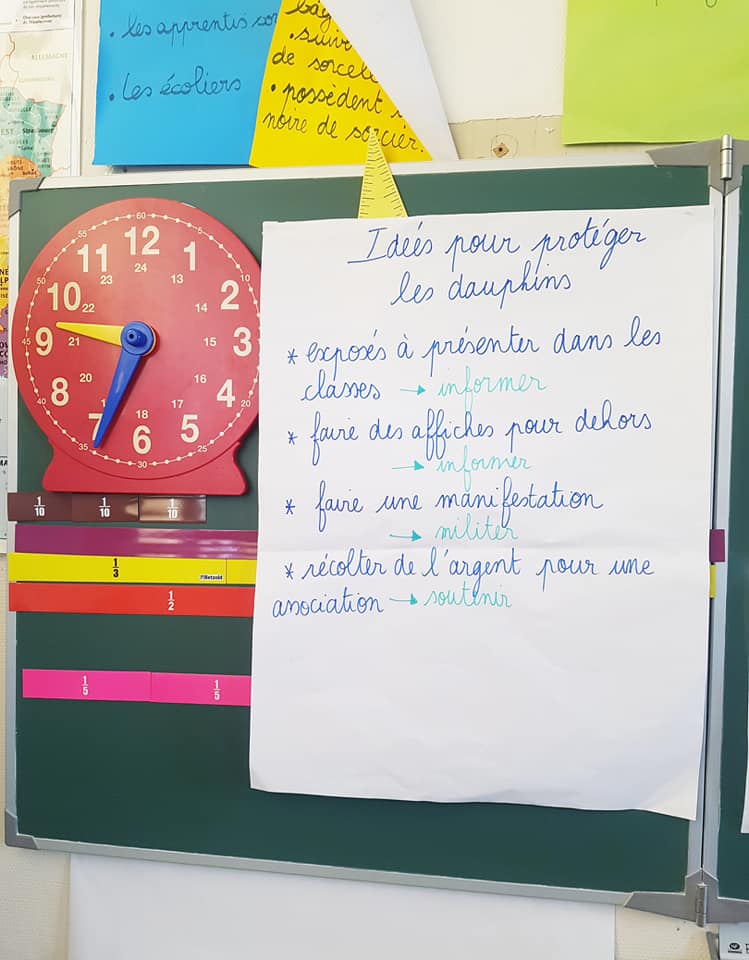 ALLEMAGNE
EST
• les apprentis sor
• Les écoliers
• suiv
de sorcel
• possèdent
noire de sorcier.
60
55 5
12
11 1
24
23 13
50 10
10 2
22 14
45 9 21 15 3
20 16
8 4
19 17
18
40 20
7 5
6
35 25
30
1/10 1/10 1/10
1/3
Betzold
1/2
1/5 1/5
Ideés pour protéger
les dauphins
* exposés à présenter dans les
classes → informer
* faire des affiches pour dehors
→ informer
* faire une manifestation
→ militer
* récolter de l'argent pour une
association → soutenir